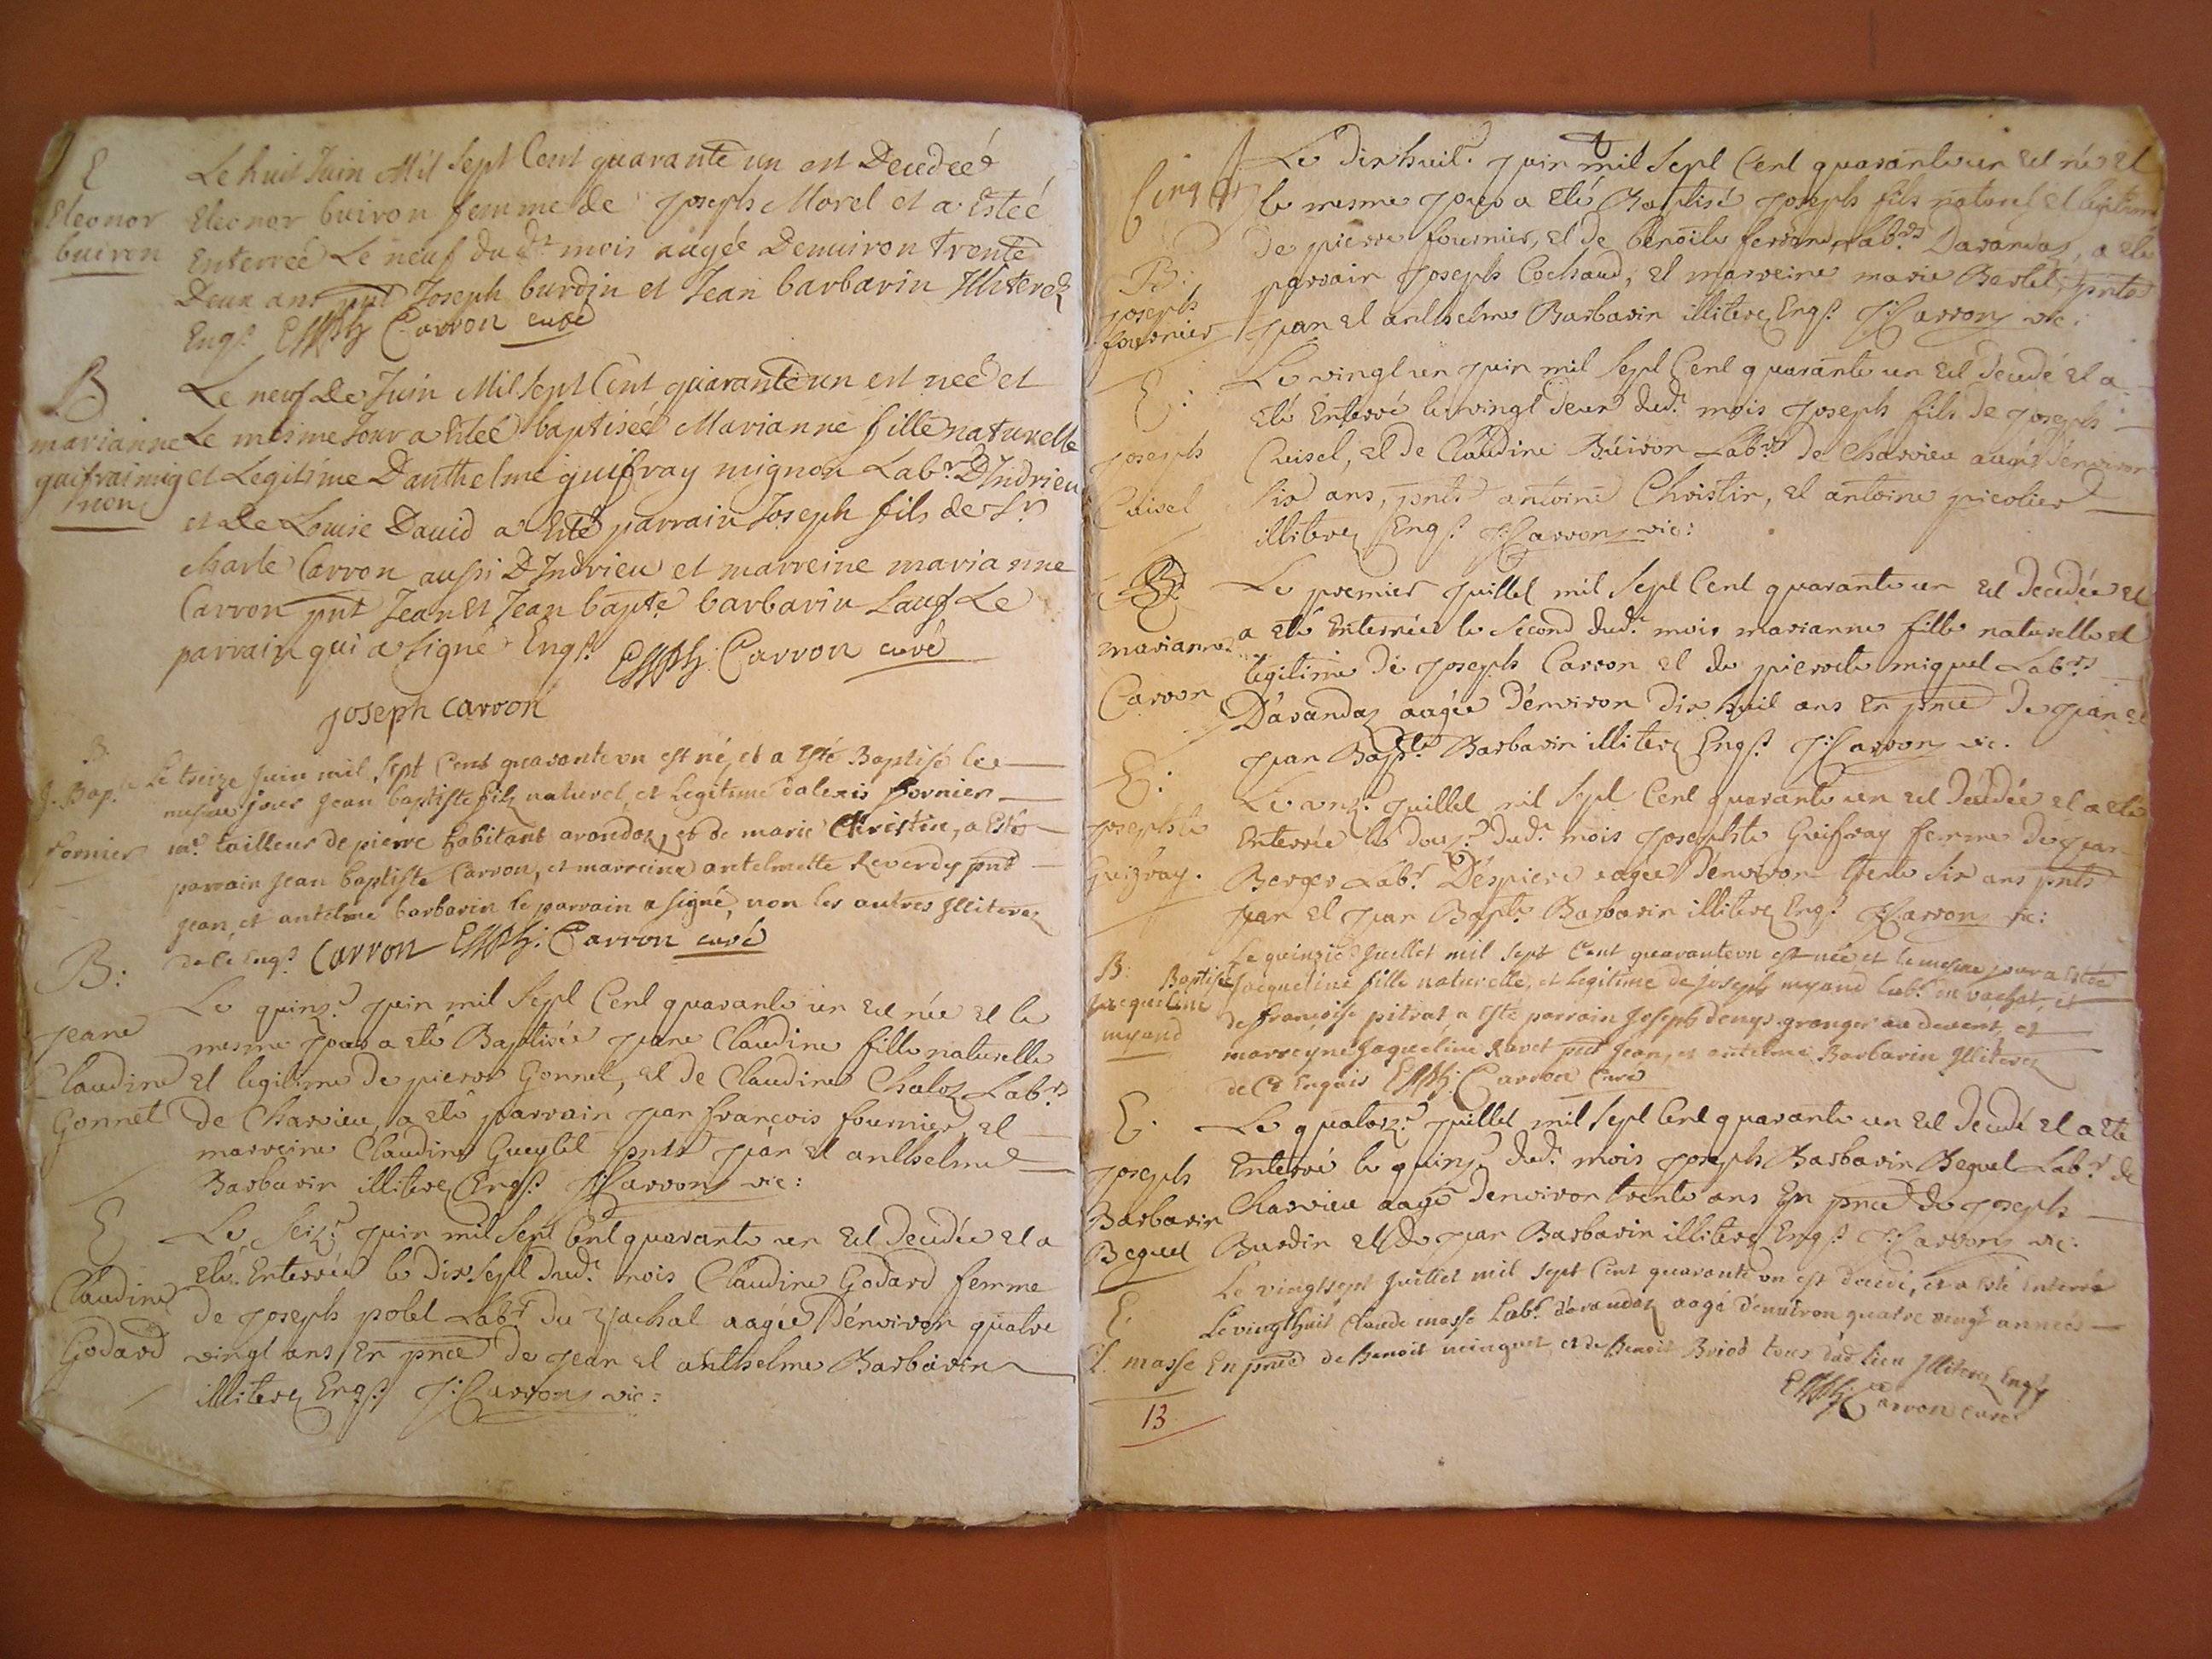 E
Eleonor
buiron
Le huit Juin Mil Sept Cent quarante un est Decedeé
Eleonor buiron femme de Joseph Morel et a Esteé
Enterreé Le neuf dud.t mois aagée Denuiron trente
Deux ans pnt Joseph burdin et Jean barbarin Illiterez
Enqs Carron curé
B
marianne
guifrai mig
non
Le neuf de Juin Mil Sept Cent quarante un est neé et
Le mesme Jour a Esteé baptiseé Marianne fille naturelle
et Legitime Danthelme guifray mignon Labr. D'Indrieu
et de Louise David a Esté parrain Joseph fils de Sr
charle Carron aussi D'Indrieu et marreine marianne
Carron pnt Jean et Jean bapte barbarin Sauf Le
parrain qui a signé Enqs. Carron curé
joseph carron
B.
J. Bap.te
fornier
Le treize Juin mil Sept Cent quarante un est né, et a esté Baptisé le
mesme jour Jean baptiste filz naturel et legitime d'alexis fornier
me. tailleur de pierre habitant arandaz, et de marie Christin, a Esté
parrain Jean baptiste Carron, et marreine antelmette Reverdy pnt
Jean, et antelme barbarin le parrain a signé, non les autres Illiterez
de ce enqs Carron Carron curé
B:
jeane
Claudine
Gonnet
Le quinz.e juin mil Sept Cent quarante un est née et le
mesme jour a eté Baptisée jeane Claudine fille naturelle
et legitime de pierre Gonnet, et de Claudine Chaloz Labrs
de Charvieu, a eté parrain jean françois fournier, et
marreine Claudine Gueylet pnts jean et anthelme
Barbarin illiterez Enqs. J: Carron vic:
E
Claudine
Godard
Le Seiz.e juin mil Sept Cent quarante un est decedée et a
eté Enterrée le dix Sept dud.t mois Claudine Godard femme
de Joseph polet Labr du vachat aagée D'environ quatre
vingt ans, En pnce de jean et anthelme Barbarin
illiterez Enqs. J: Carron vic:
Cinq
B:
joseph
fournier
Le dix huit.e juin mil Sept Cent quarante un est né et
le mesme jour a eté Baptisé joseph fils naturel et legitime
de pierre fournier, et de benoite ferrand, Labrs Darandaz, a eté
parrain joseph Cochaud, et marreine marie Bertet, pnts
jean et anthelme Barbarin illiterez Enqs. J: Carron vic:
E:
joseph
Cuisel
Le vingt un juin mil Sept Cent quarante un est decedé et a
eté Enterré le vingt deux dud.t mois joseph fils de joseph
Cuisel, et de Claudine Buiron Labrs de Charvieu aagé d'environ
six ans, pnts antoine Christin, et antoine picolier
illiterez Enqs. J: Carron vic:
E:
marianne
Carron
Le premier juillet mil Sept Cent quarante un est decedée et
a eté Enterrée le Second dud.t mois marianne fille naturelle et
legitime de joseph Carron et de pierrette miguet Labrs
D'arandaz aagée D'environ dix huit ans En pnce de jean et
jean Bapte. Barbarin illiterez Enqs. J: Carron vic.
E:
josephte
Guifray.
Le onz.e juillet mil Sept Cent quarante un est decedée et a eté
Enterrée le douz.e dud.t mois josephte Guifray femme de jean
Berger Labr. D'espiere aagée d'environ trente six ans pnts
jean et jean Bapte. Barbarin illiterez Enqs. J: Carron vic:
B:
jacqueline
myand
Le quinzie. Juillet mil Sept Cent quarante un est née et le mesme jour a Estée
Baptisée Jacqueline fille naturelle, et legitime de joseph myand labr. au vachat, et
de françoise pitrat a esté parrain Joseph denys granger au devent, et
marreyne Jaqueline Ravet pnt Jean, et antelme Barbarin Illiterez
de ce Enquis Carron curé
E.
joseph
Barbarin
Beguet
Le quatorz.e juillet mil Sept Cent quarante un est decedé et a eté
Enterré le quinz.e dud.t mois joseph Barbarin Beguet Labr de
Charvieu aagé d'environ trente ans En pnce de joseph
Burdin et de jean Barbarin illiterez Enqs. J: Carron vic:
E.
Cl. masse
Le vingt sept Juillet mil Sept Cent quarante un est decedé, et a Esté Enterré
Le vingt huit Claude masse Labr d'arandaz aagé d'environ quatre vingt années
En pnce de Benoit minguet et de Benoit Briod tous dud lieu Illiterez Enqs
Carron curé
13